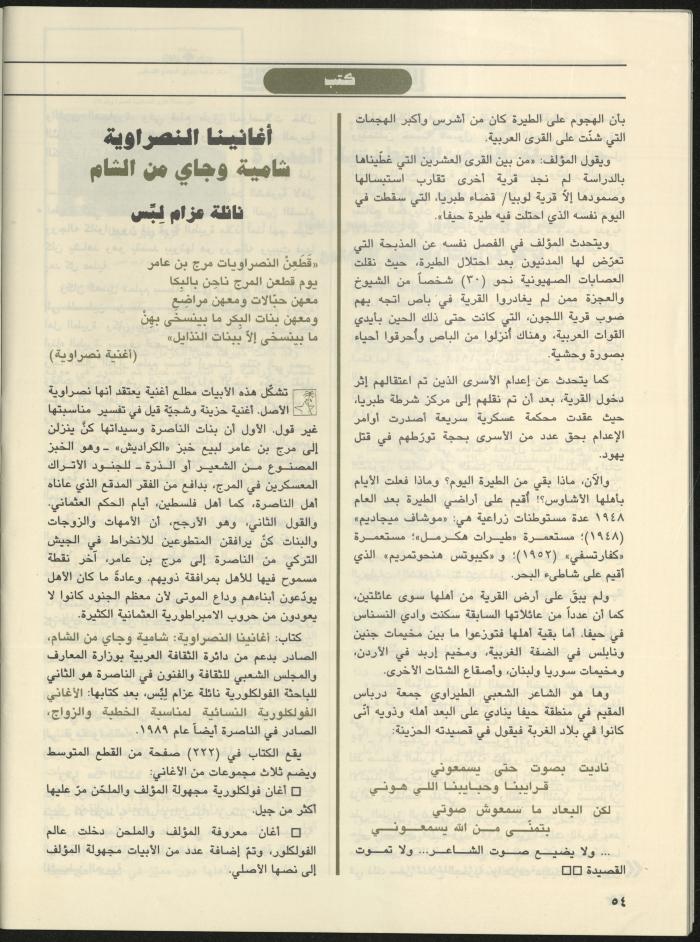 كتب
بأن الهجوم على الطيرة كان من أشرس وأكبر الهجمات
التي شنّت على القرى العربية.
ويقول المؤلف: «من بين القرى العشرين التي غطّيناها
بالدراسة لم نجد قرية أخرى تقارب استبسالها
وصمودها إلاّ قرية لوبيا/ قضاء طبريا، التي سقطت في
اليوم نفسه الذي احتلت فيه طيرة حيفا».
ويتحدث المؤلف في الفصل نفسه عن المذبحة التي
تعرّض لها المدنيون بعد احتلال الطيرة، حيث نقلت
العصابات الصهيونية نحو (٣٠) شخصاً من الشيوخ
والعجزة ممن لم يغادروا القرية في باص اتجه بهم
صوب قرية اللجون، التي كانت حتى ذلك الحين بأيدي
القوات العربية، وهناك أُنزلوا من الباص وأُحرقوا أحياء
بصورة وحشية.
كما يتحدث عن إعدام الأسرى الذين تم اعتقالهم إثر
دخول القرية، بعد أن تم نقلهم إلى مركز شرطة طبريا،
حيث عقدت محكمة عسكرية سريعة أصدرت أوامر
الإعدام بحق عدد من الأسرى بحجة تورّطهم في قتل
يهود.
والآن، ماذا بقي من الطيرة اليوم؟ وماذا فعلت الأيام
بأهلها الأشاوس؟! أُقيم على أراضي الطيرة بعد العام
١٩٤٨ عدة مستوطنات زراعية هي: «موشاف ميجاديم»
(١٩٤٨)؛ مستعمرة «طيرات هكرمل»؛ مستعمرة
«كفارتسفي» (١٩٥٢)؛ و «كيبوتس هنحوتمريم» الذي
أقيم على شاطىء البحر.
ولم يبقَ على أرض القرية من أهلها سوى عائلتين،
كما أن عدداً من عائلاتها السابقة سكنت وادي النسناس
في حيفا. أما بقية أهلها فتوزعوا ما بين مخيمات جنين
ونابلس في الضفة الغربية، ومخيم إربد في الأردن،
ومخيمات سوريا ولبنان، وأصقاع الشتات الأخرى.
وها هو الشاعر الشعبي الطيراوي جمعة درباس
المقيم في منطقة حيفا ينادي على البعد أهله وذويه أنّى
كانوا في بلاد الغربة فيقول في قصيدته الحزينة:
ناديت بصوت حتى يسمعوني
قرايبنا وحبايبنا اللي هوني
لكن البعاد ما سمعوش صوتي
بتمنّى من الله يسمعوني
... ولا يضيع صوت الشاعر... ولا تموت
القصيدة □□
أغانينا النصراوية
شامية وجاي من الشام
نائلة عزام لِبّس
«قَطَعِنْ النصراويات مرج بن عامر
يوم قطعن المرج ناحِن بالبكا
معهن حبّالات ومعهن مراضع
ومعهن بنات البِكر ما بينسخى بهِنْ
ما بينسخى إلاّ ببنات النذايل»
(أغنية نصراوية)
تشكّل هذه الأبيات مطلع أغنية يعتقد أنها نصراوية
الأصل. أغنية حزينة وشجيّة قيل في تفسير مناسبتها
غير قول. الأول أن بنات الناصرة وسيداتها كنَّ ينزلن
إلى مرج بن عامر لبيع خبز «الكراديش» ـ وهو الخبز
المصنوع من الشعير أو الذرة ـ للجنود الأتراك
المعسكرين في المرج، بدافع من الفقر المدقع الذي عاناه
أهل الناصرة، كما أهل فلسطين، أيام الحكم العثماني.
والقول الثاني، وهو الأرجح، أن الأمهات والزوجات
والبنات كنَّ يرافقن المتطوعين للانخراط في الجيش
التركي من الناصرة إلى مرج بن عامر، آخر نقطة
مسموح فيها للأهل بمرافقة ذويهم. وعادةً ما كان الأهل
يودّعون أبناءهم وداع الموتى لأن معظم الجنود كانوا لا
يعودون من حروب الامبراطورية العثمانية الكثيرة.
كتاب: أغانينا النصراوية: شامية وجاي من الشام،
الصادر بدعم من دائرة الثقافة العربية بوزارة المعارف
والمجلس الشعبي للثقافة والفنون في الناصرة هو الثاني
للباحثة الفولكلورية نائلة عزام لِبّس، بعد كتابها: الأغاني
الفولكلورية النسائية لمناسبة الخطبة والزواج،
الصادر في الناصرة أيضاً عام ١٩٨٩.
يقع الكتاب في (٢٢٢) صفحة من القطع المتوسط
ويضم ثلاث مجموعات من الأغاني:
□ أغان فولكلورية مجهولة المؤلف والملحّن مرّ عليها
أكثر من جيل.
□ أغان معروفة المؤلف والملحن دخلت عالم
الفولكلور، وتمّ إضافة عدد من الأبيات مجهولة المؤلف
إلى نصها الأصلي.
٥٤